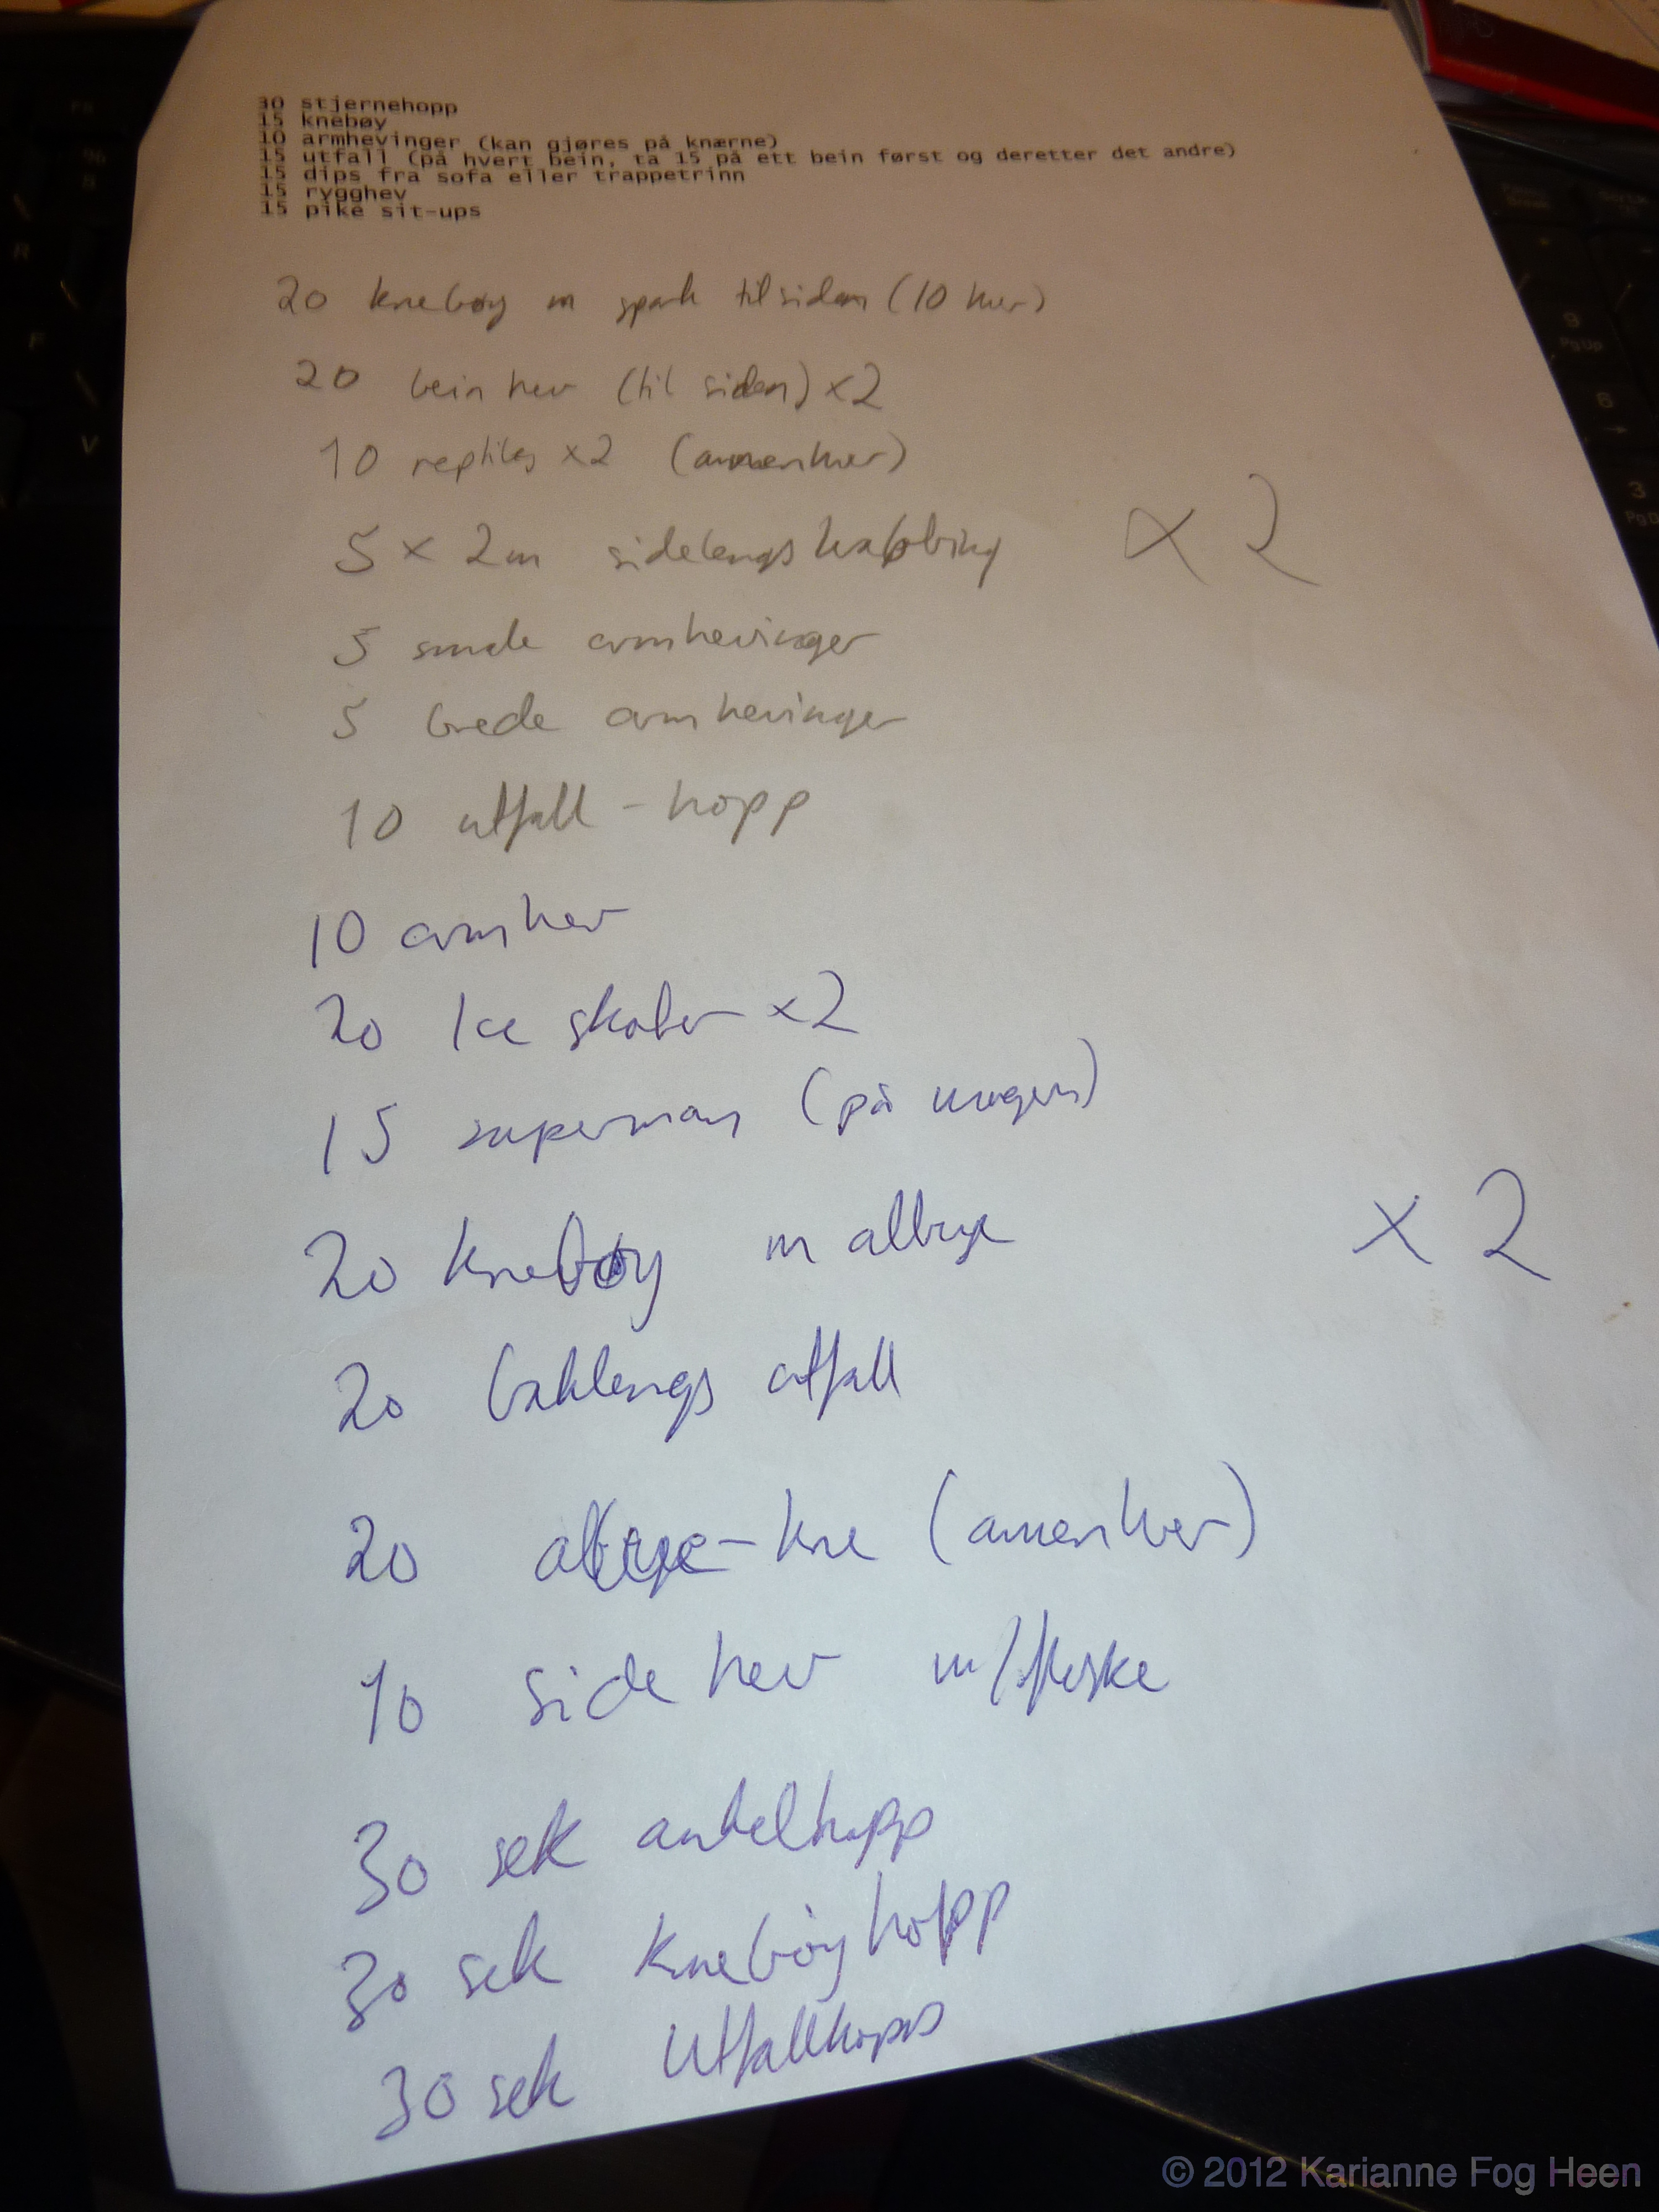 30 stjernehopp
15 knebøy
10 armhevinger (kan gjøres på knærne)
15 utfall (på hvert bein, ta 15 på ett bein først og deretter det andre)
15 dips fra sofa eller trappetrinn
15 rygghev
15 pike sit-ups
20 knebøy m spark til siden (10 hver)
20 bein hev (til siden) x2
10 reptiles x2 (annenhver)
5 x 2m sidelengs krabbing
x2
5 smale armhevinger
5 brede armhevinger
10 utfall - hopp
10 armhev
20 Ice skater x2
15 superman (på magen)
20 knebøy m albue
x 2
20 baklengs utfall
20 albue-kne (annenhver)
10 side hev m/flaske
30 sek ankelhopp
30 sek knebøyhopp
30 sek Utfallhopp
© 2012 Karianne Fog Heen